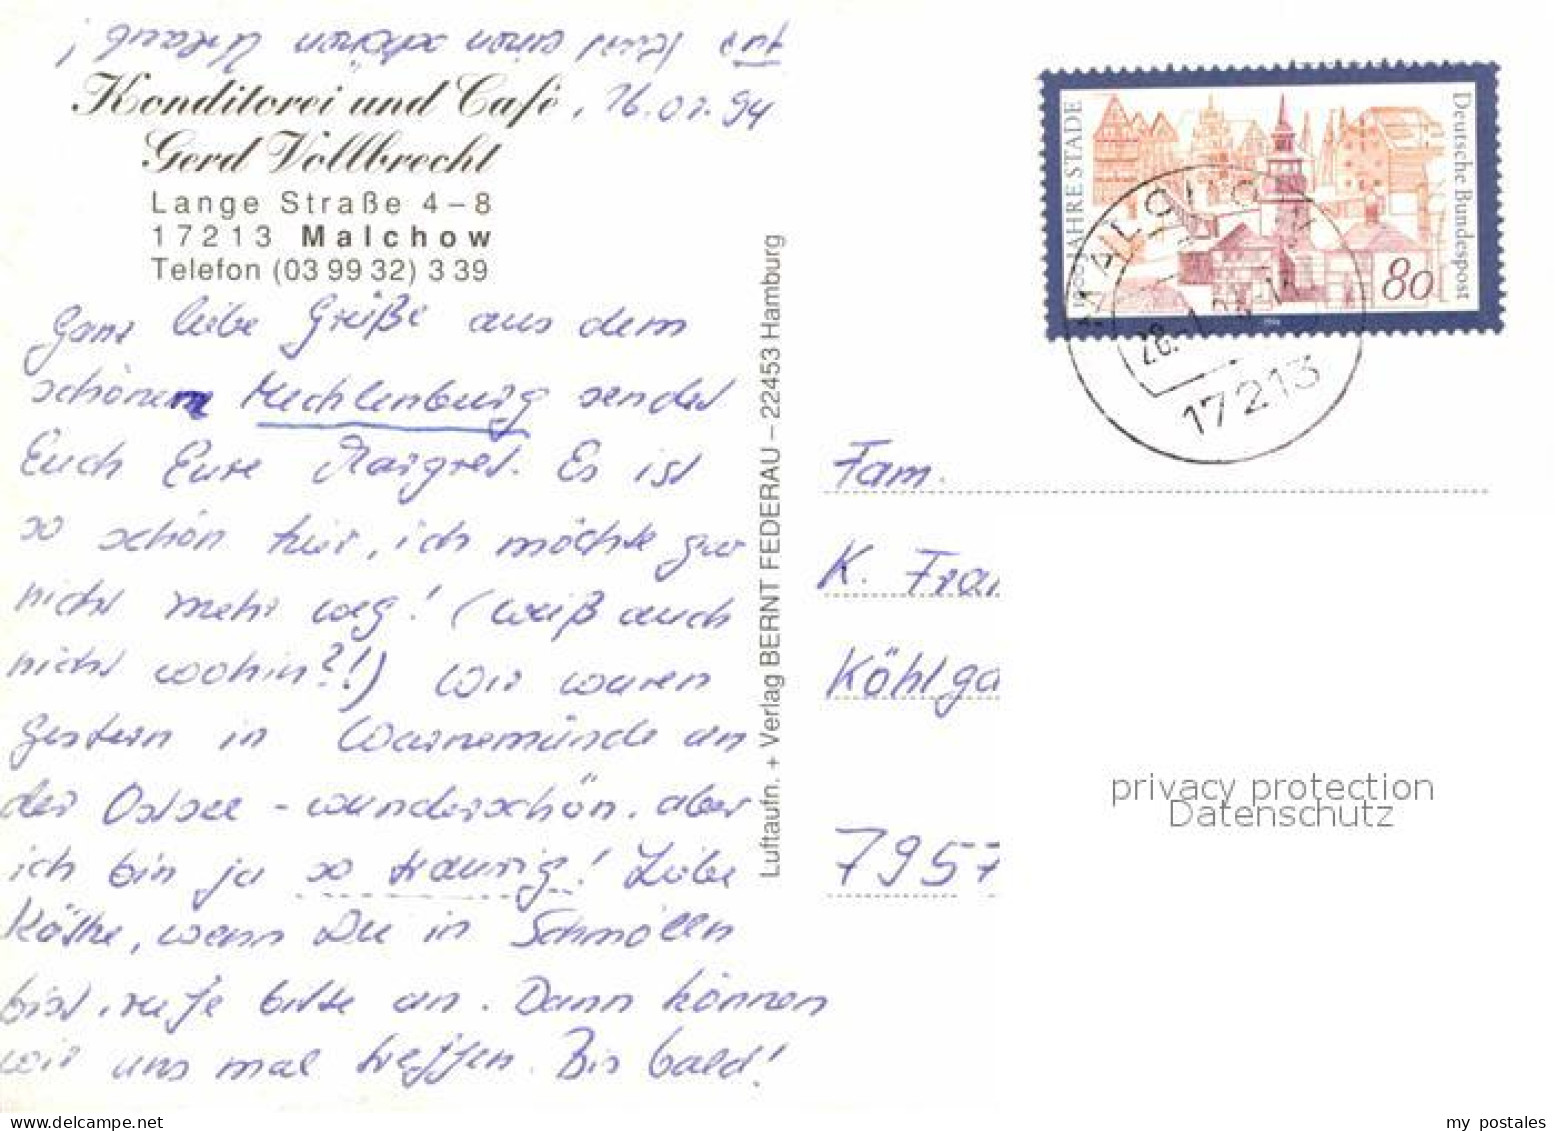 Konditorei und Café, 16.07.94
Gerd Vollbrecht
Lange Straße 4–8
17213 Malchow
Telefon (03 99 32) 3 39
Ganz liebe Grüße aus dem
schönen Mecklenburg sendet
Euch Eure Margret. Es ist
so schön hier, ich möchte gar
nicht mehr weg! (weiß auch
nicht wohin?!) Wir waren
gestern in Warnemünde an
der Ostsee - wunderschön, aber
ich bin ja so traurig! Liebe
Käthe, wenn Du in Schmölln
bist, rufe bitte an. Dann können
wir uns mal treffen. Bis bald!
Euch einen schönen Urlaub!
Luftaufn. + Verlag BERNT FEDERAU – 22453 Hamburg
1000 JAHRE STADE
Deutsche Bundespost
80
MALCHOW
17213
Fam.
K. Fra
Köhlga
7957
privacy protection
Datenschutz
my postales